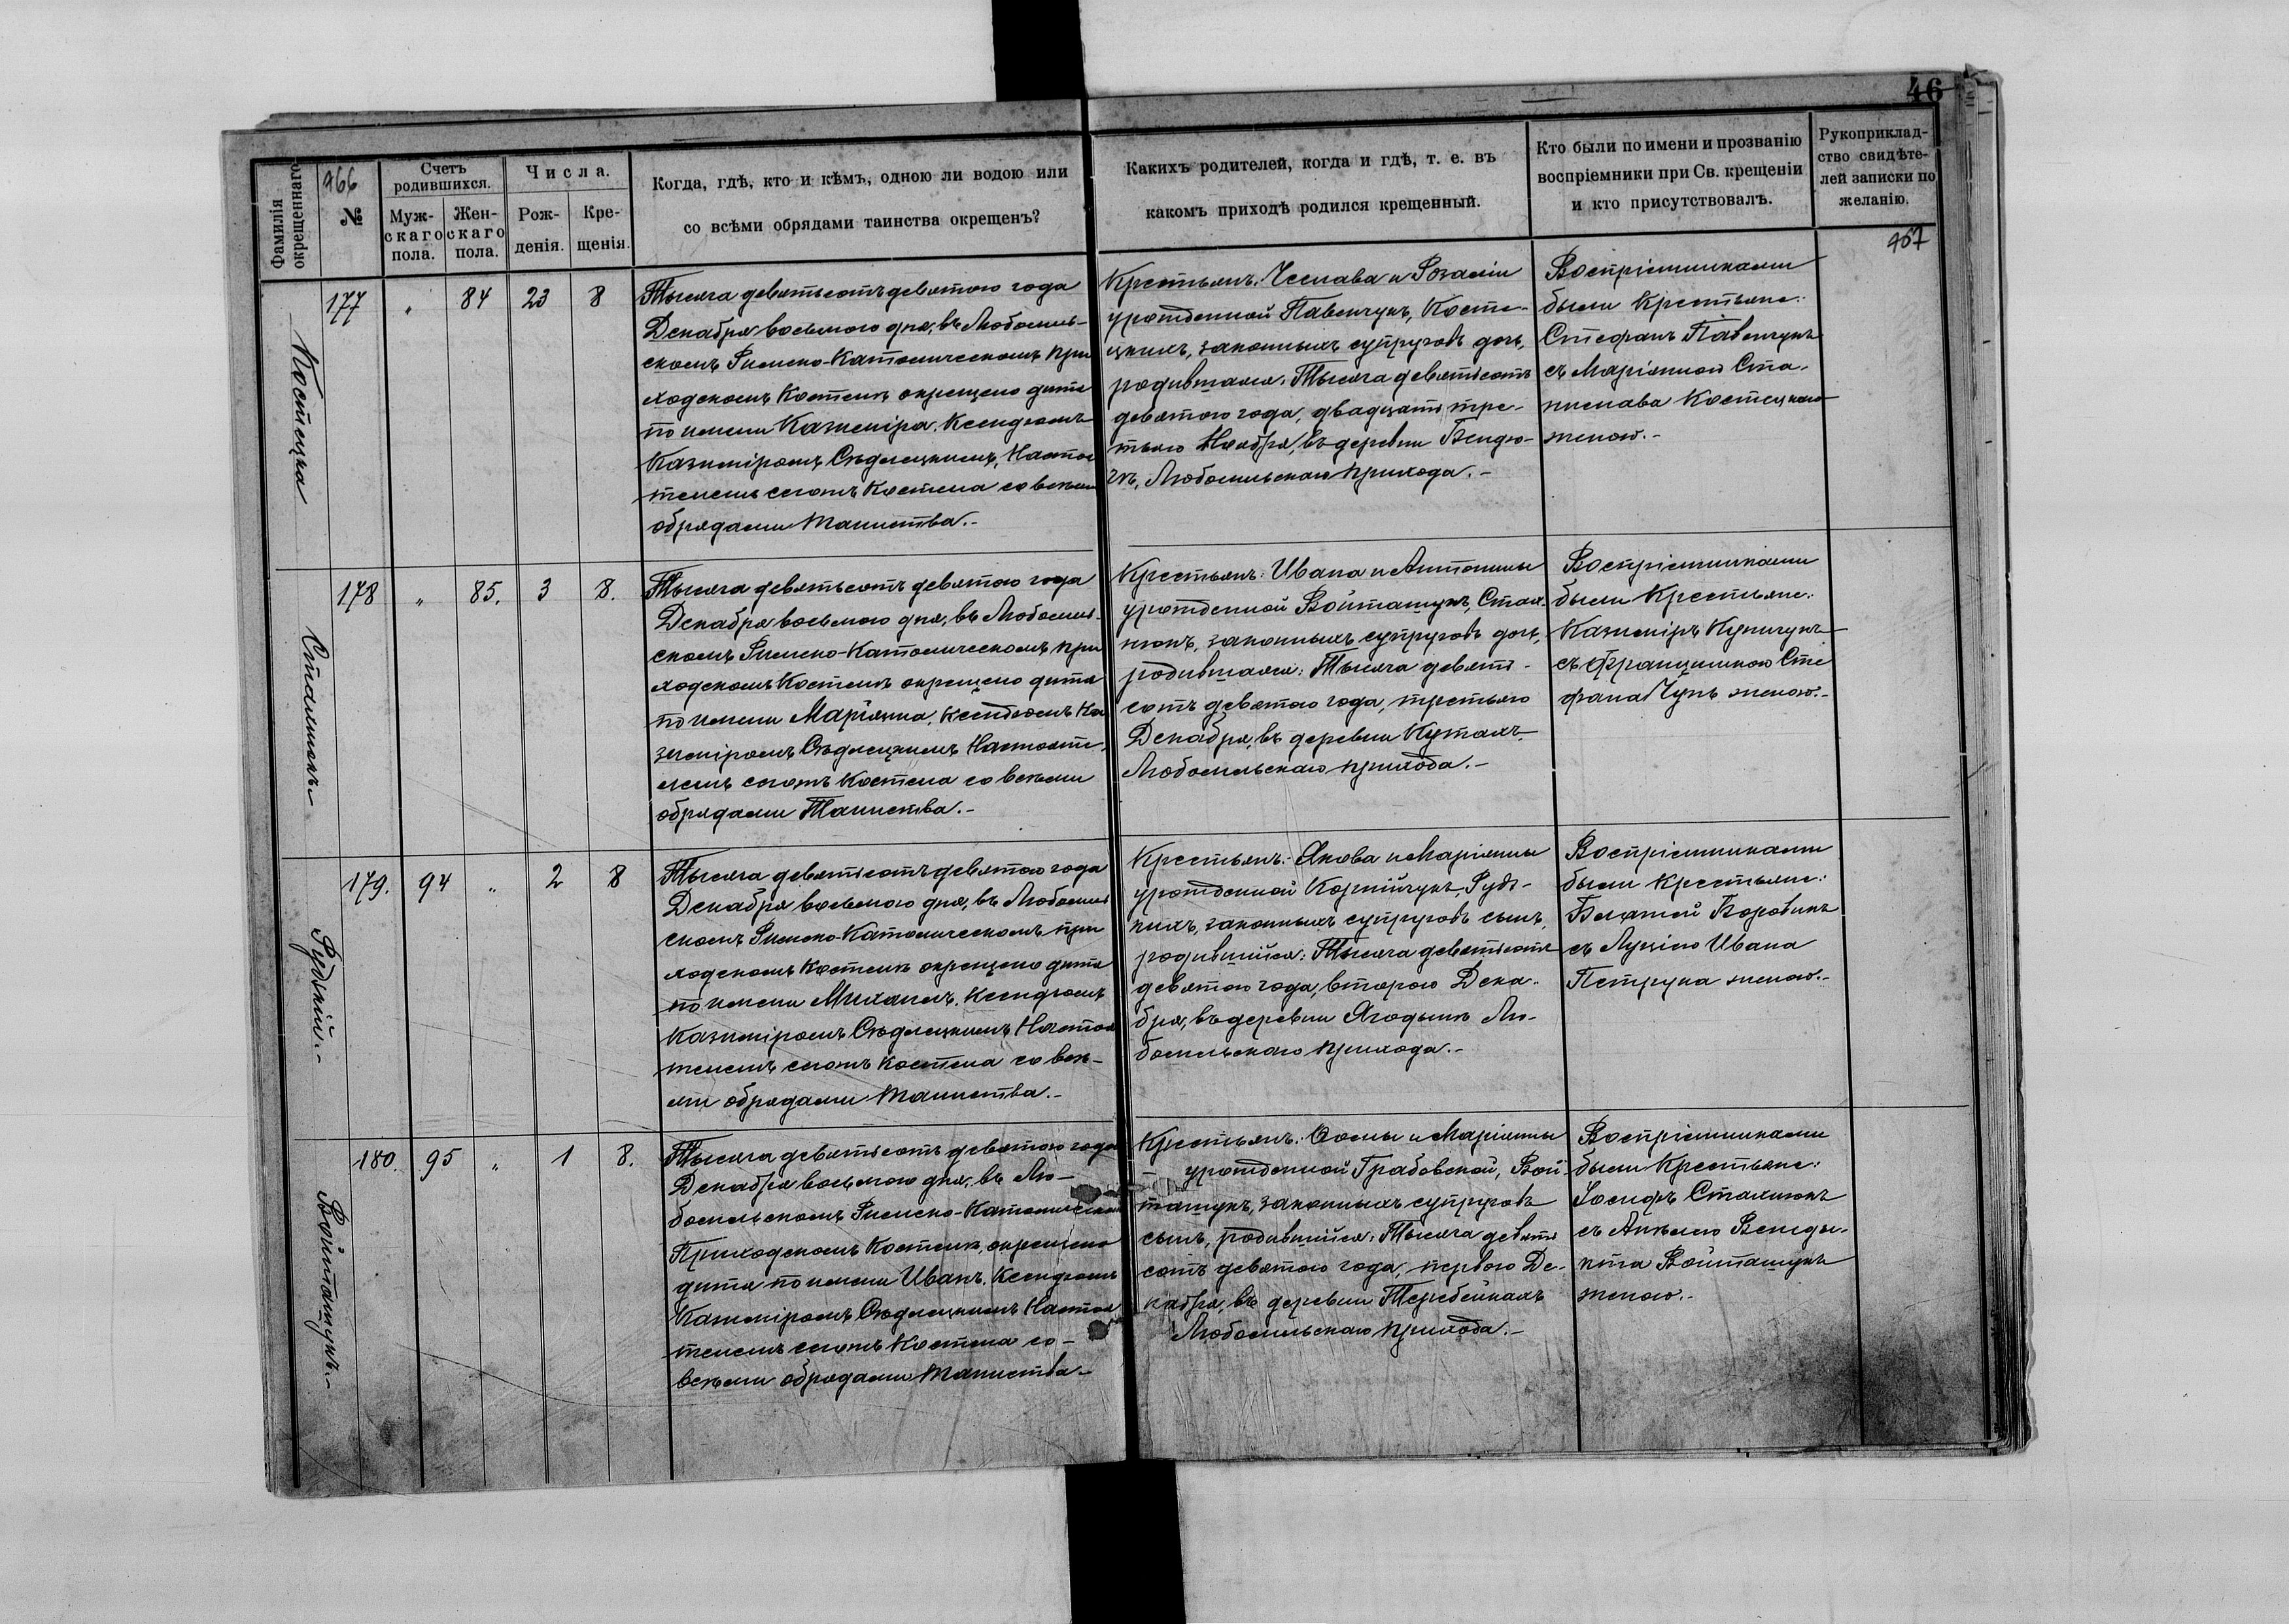 46
Фамилія
окрещеннаго
966
№
Счетъ
родившихся.
Муж-
скаго
пола.
Жен-
скаго
пола.
Числа.
Рож-
денія.
Кре-
щенія.
Когда, гдѣ, кто и кѣмъ, одною ли водою или
со всѣми обрядами таинства окрещенъ?
Какихъ родителей, когда и гдѣ, т. е. въ
какомъ приходѣ родился крещенный.
Кто были по имени и прозванію
воспріемники при Св. крещеніи
и кто присутствовалъ.
Рукоприклад-
ство свидѣте-
лей записки по
желанію.
967
Костецка
177 " 84 23 8
Тысяча девятьсотъ девятого года
Декабря восьмого дня, въ Любомль-
скомъ Римско-Католическомъ при
ходскомъ Костелѣ окрещено дитя
по имени Казиміра. Ксендзомъ
Казиміромъ Сѣдлецкимъ, Настоя
телемъ сегожъ Костела со всѣми
обрядами Таинства.-
Крестьянъ: Чеслава и Розаліи
урожденной Павенчукъ, Косте-
цкихъ, законныхъ супруговъ дочь,
родившаяся: Тысяча девятьсотъ
девятого года, двадцать тре-
тьяго Ноября, въ деревни Бендю-
гѣ, Любомльскаго прихода.-
Воспріемниками
были Крестьяне:
Стефанъ Павенчукъ
съ Маріянною Ста-
нислава Костецкаго
женою.-
Сталянокъ
178 " 85. 3 8.
Тысяча девятьсотъ девятого года
Декабря восьмого дня, въ Любомль-
скомъ Римско-Католическомъ при
ходскомъ Костелѣ окрещено дитя
по имени Маріянна. Ксендзомъ Ка
зиміромъ Сѣдлецкимъ Настояте-
лемъ сегожъ Костела со всѣми
обрядами Таинства.-
Крестьянъ: Ивана и Антонины
урожденной Войташукъ, Стал-
нокъ, законныхъ супруговъ дочь,
родившаяся: Тысяча девять-
сотъ девятого года, третьяго
Декабря, въ деревни Кутахъ
Любомльскаго прихода.-
Воспріемниками
были Крестьяне:
Казиміръ Куничукъ
съ Францишкою Сте
фана Чупъ женою.-
Рудзкій.-
179. 94 " 2 8
Тысяча девятьсотъ девятого года
Декабря восьмого дня, въ Любомль
скомъ Римско-Католическомъ при
ходскомъ Костелѣ окрещено дитя
по имени Михаилъ. Ксендзомъ
Казиміромъ Сѣдлецкимъ Настоя
телемъ сегожъ Костела со всѣ-
ми обрядами Таинства.-
Крестьянъ: Якова и Маріянны
урожденной Корнійчукъ, Рудз-
кихъ, законныхъ супруговъ сынъ,
родившійся: Тысяча девятьсотъ
девятого года, второго Дека-
бря, въ деревни Ягодынѣ Лю-
бомльскаго прихода.-
Воспріемниками
были Крестьяне:
Боровикъ
съ Луціею Ивана
Петрука женою.-
Войташукъ.-
180. 95 " 1 8.
Тысяча девятьсотъ девятого года
Декабря восьмого дня, въ Лю-
бомльскомъ Римско-Католическомъ
Приходскомъ Костелѣ, окрещено
дитя по имени Иванъ. Ксендзомъ
Казиміромъ Сѣдлецкимъ Настоя
телемъ сегожъ Костела со-
всѣми обрядами Таинства.-
Крестьянъ: Ѳомы и Маріянны
урожденной Грабовской, Вой-
ташукъ, законныхъ супруговъ
сынъ, родившійся: Тысяча девять
сотъ девятого года, перваго Де-
кабря, въ деревни Теребейкахъ
Любомльскаго прихода.-
Воспріемниками
были Крестьяне:
Іосифъ Сталнокъ
съ Анелею Венеды-
кта Войташукъ
женою.-